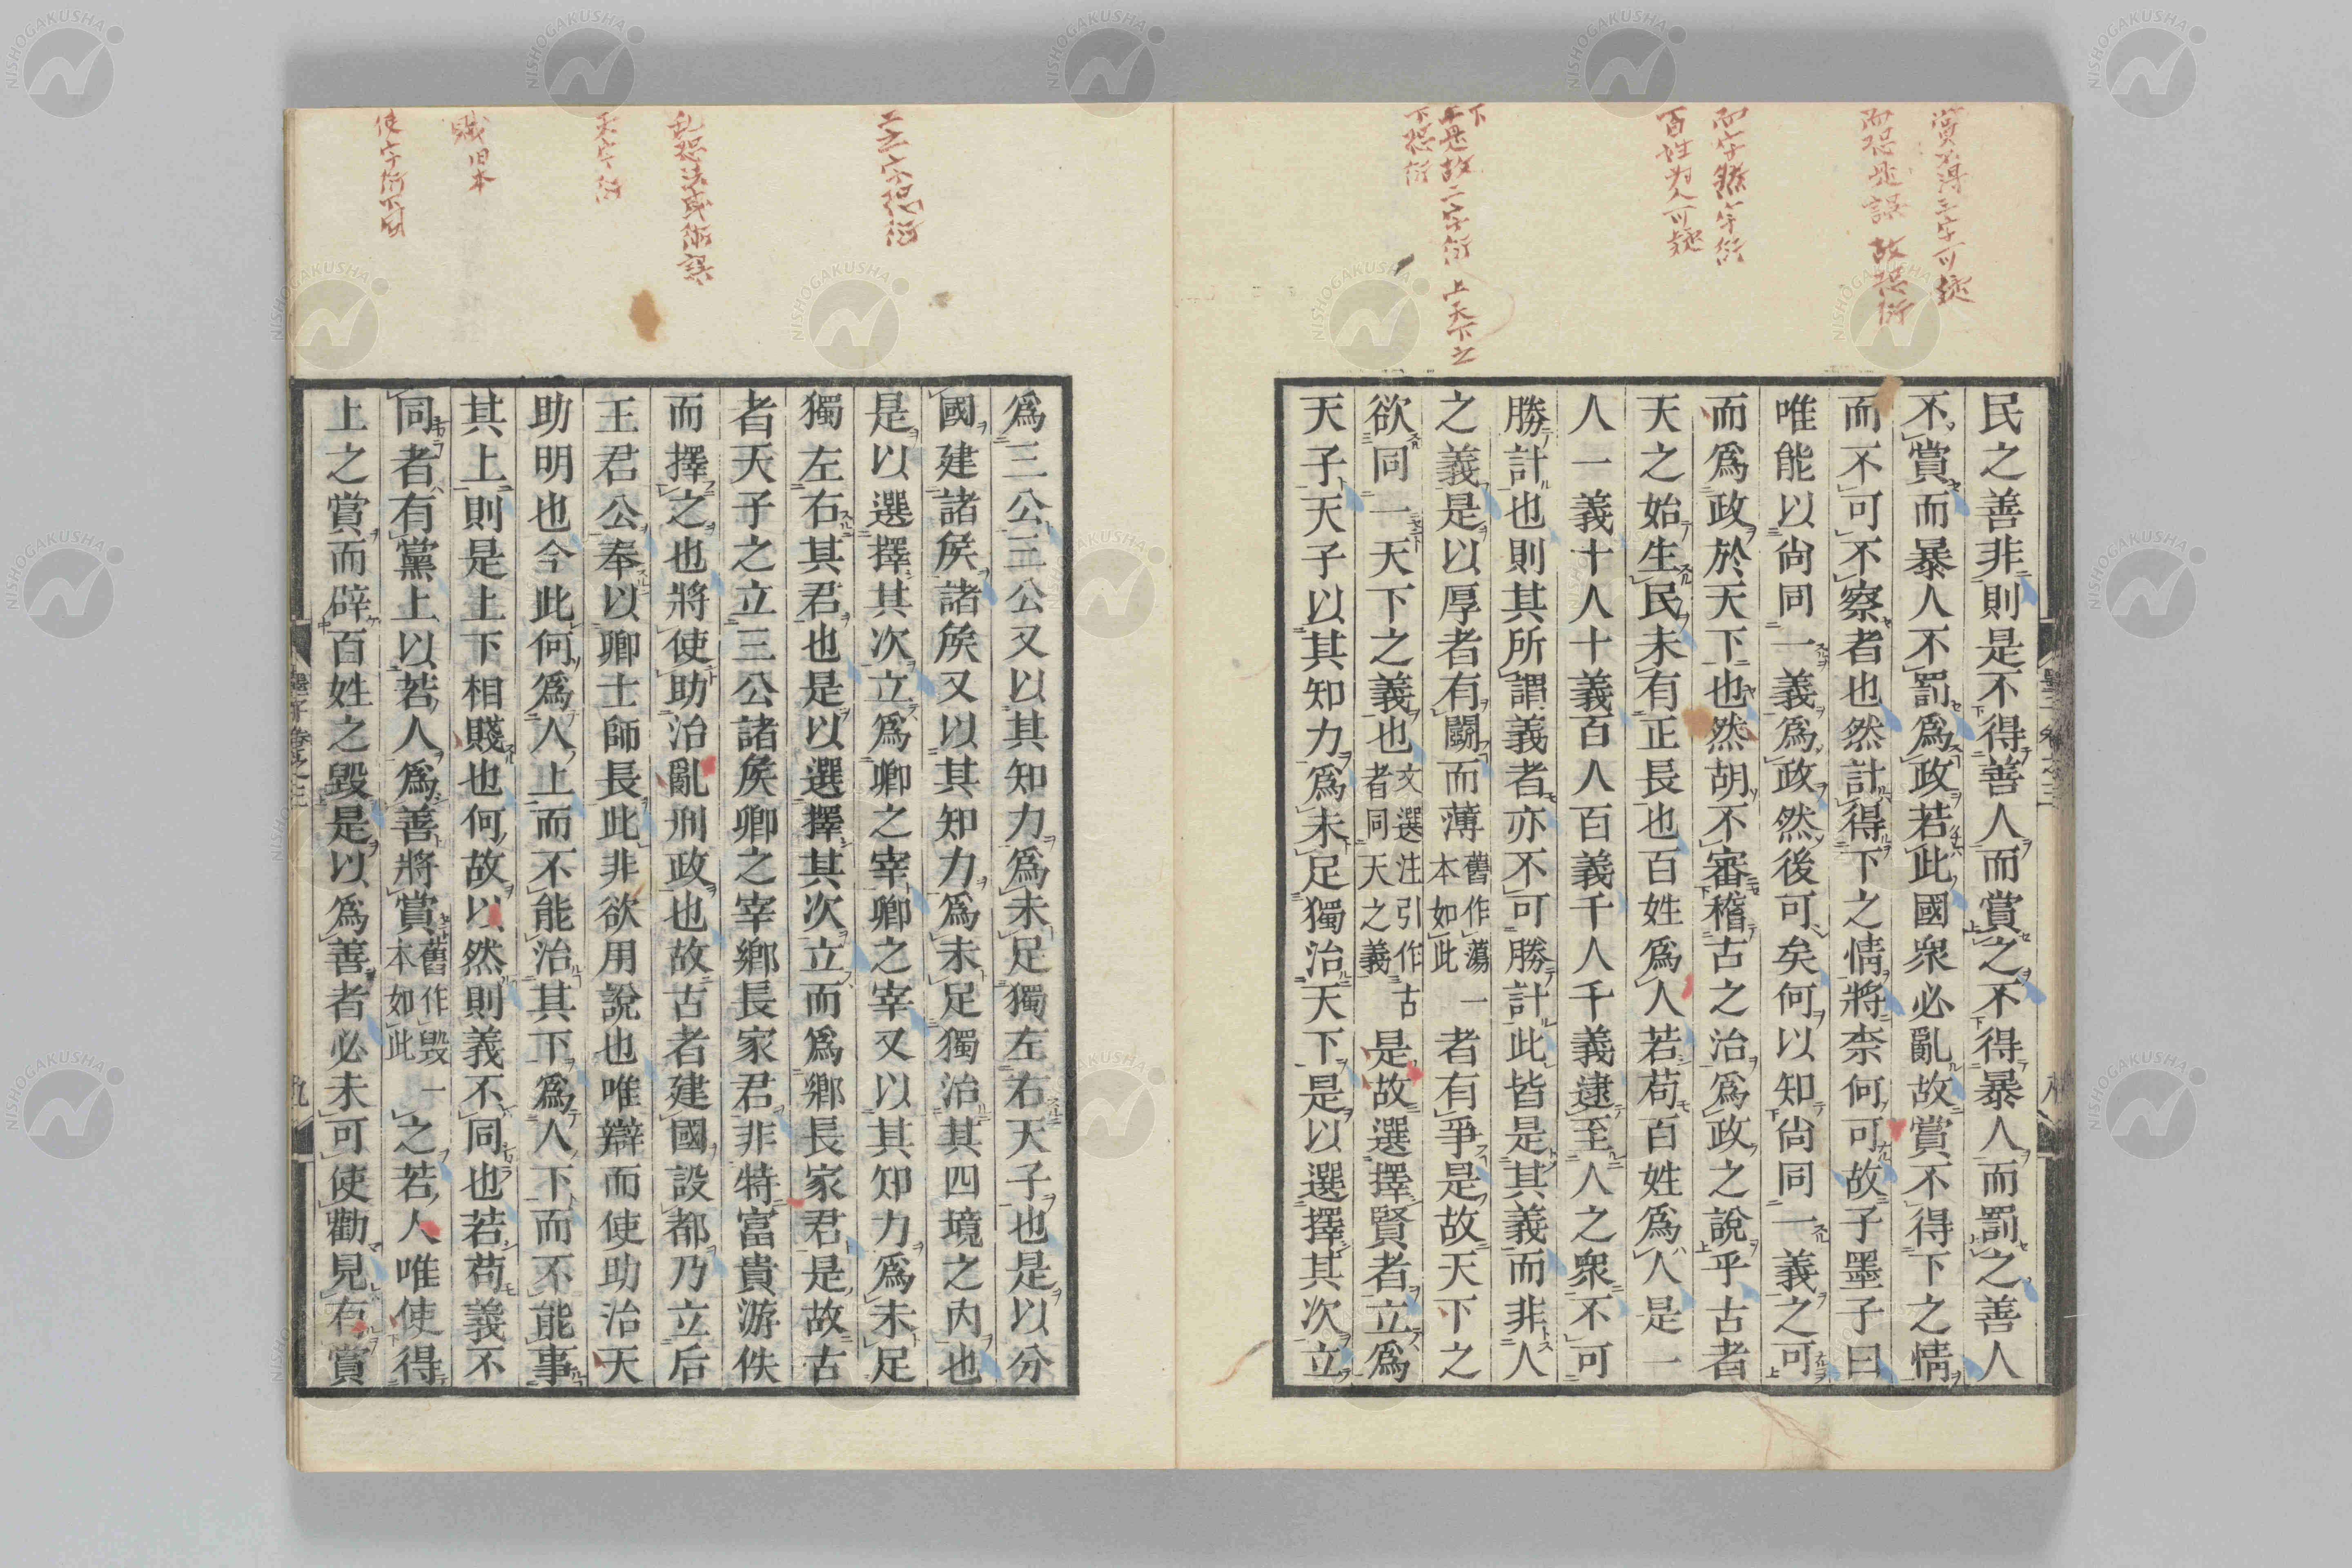 民之善非則是不得善人而賞之不得暴人而罰之善人
不賞而暴人不罰爲政若此國衆必亂故賞不得下之情
而不可不察者也然計得下之情將柰何可故子墨子曰
唯能以尙同一義爲政然後可矣何以知尙同一義之可
而爲政於天下也然胡不審稽古之治爲政之說乎古者
天之始生民未有正長也百姓爲人若苟百姓爲人是一
人一義十人十義百人百義千人千義逮至人之衆不可
勝計也則其所謂義者亦不可勝計此皆是其義而非人
之義是以厚者有鬬而薄舊作蕩一本如此者有爭是故天下之
欲同一天下之義也文選注引作古者同天之義是故選擇賢者立爲
天子天子以其知力爲未足獨治天下是以選擇其次立
爲三公三公又以其知力爲未足獨左右天子也是以分
國建諸矦諸矦又以其知力爲未足獨治其四境之內也
是以選擇其次立爲卿之宰卿之宰又以其知力爲未足
獨左右其君也是以選擇其次立而爲鄉長家君是故古
者天子之立三公諸矦卿之宰鄉長家君非特富貴游佚
而擇之也將使助治亂刑政也故古者建國設都乃立后
王君公奉以卿士師長此非欲用說也唯辯而使助治天
助明也今此何爲人上而不能治其下爲人下而不能事
其上則是上下相賤也何故以然則義不同也若苟義不
同者有黨上以若人爲善將賞舊作毀一本如此之若人唯使得
上之賞而辟百姓之毀是以爲善者必未可使勸見有賞
墨子卷之三
九
賞不得三字可疑
而恐是誤 故恐衍
而字然字衍
百姓爲人可疑
下
是故二字衍 上天下之
下恐衍
亂恐法或術誤
天字衍
賤旧本
NISHOGAKUSHA